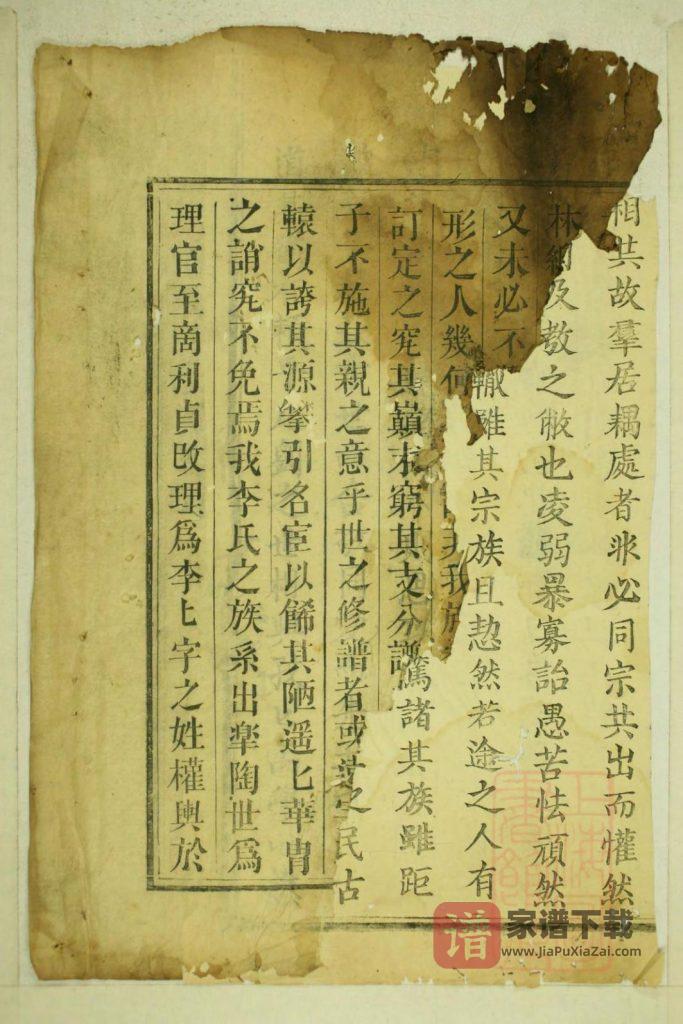 相其故羣居耦處者非必同宗共出而懽然
林網及敎之敝也凌弱暴寡詒愚苦怯頑然
又未必不 轍雖其宗族且恝然若途之人有
形之人幾何 非我族
訂定之究其巔末窮其支分譜 篤諸其族雖距
子不施其親之意乎世之修譜者或 民古
轅以誇其源攀引名宦以餙其陋遥匕華胄
之誚究不免焉我李氏之族系出臯陶世爲
理官至啇利貞改理爲李匕字之姓權輿於
譜 家谱下载
www.JiaPuXiaZai.com